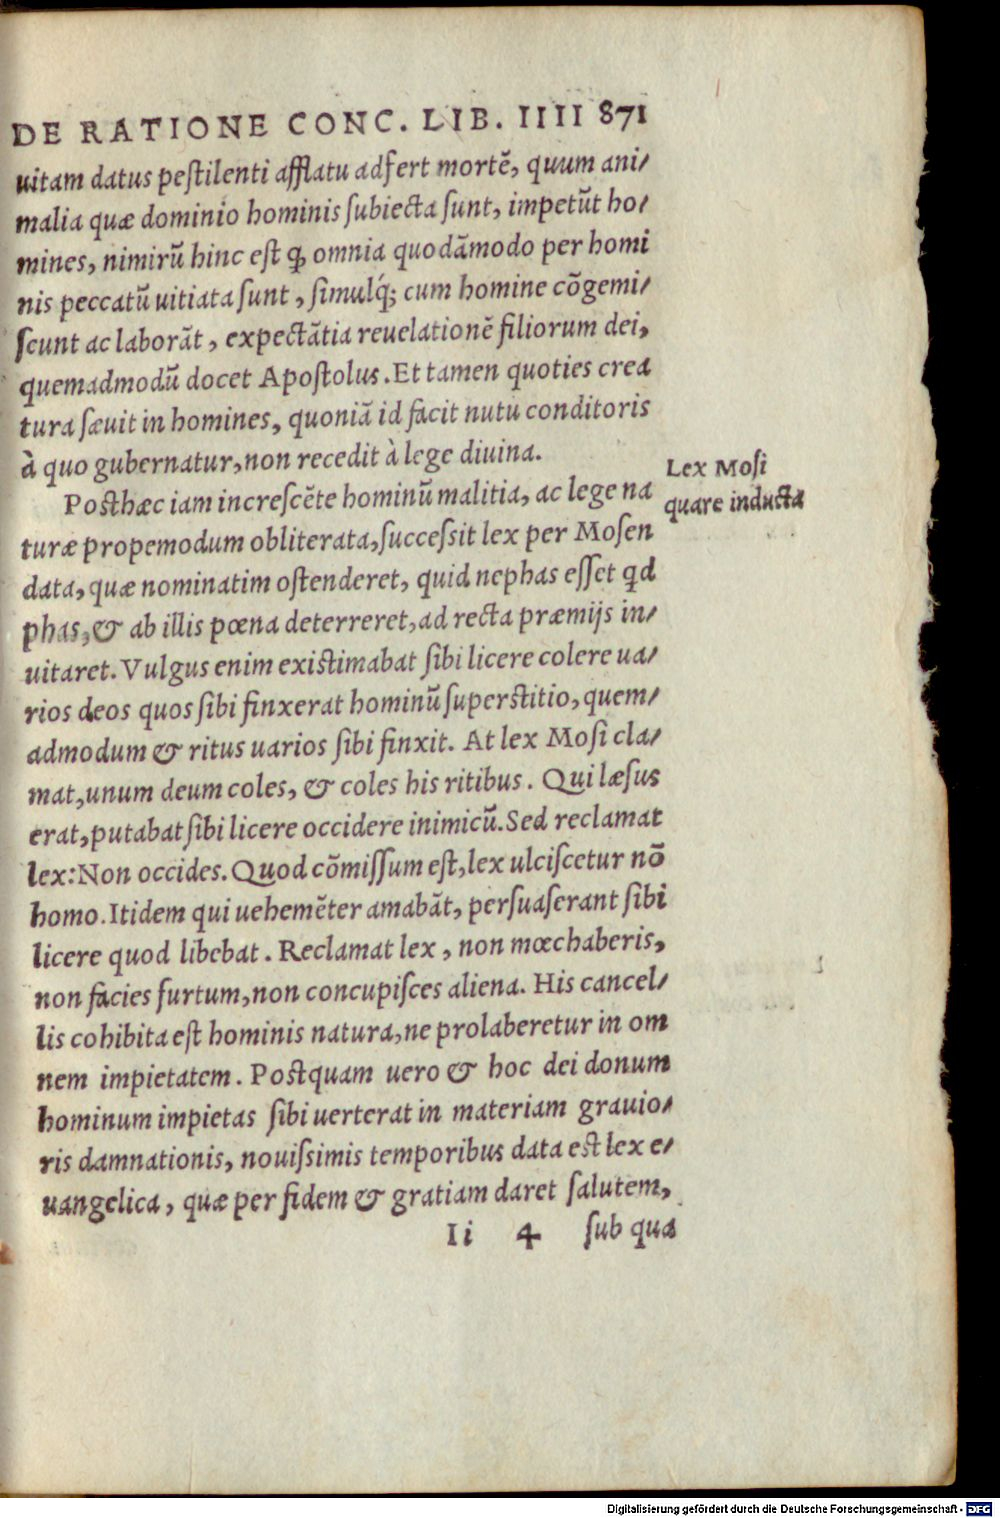 DE RATIONE CONC. LIB. IIII 871
uitam datus peſtilenti afflatu adfert mortē, quum ani/
malia quæ dominio hominis ſubiecta ſunt, impetūt ho/
mines, nimirū hinc eſt ꝙ omnia quodāmodo per homi
nis peccatū uitiata ſunt, ſimulq́; cum homine cōgemi/
ſcunt ac laborāt, expectātia reuelationē filiorum dei,
quemadmodū docet Apoſtolus. Et tamen quoties crea
tura ſæuit in homines, quoniā id facit nutu conditoris
à quo gubernatur, non recedit à lege diuina.
Lex Moſi
quare inducta
Posthæc iam increſcēte hominū malitia, ac lege na
turæ propemodum obliterata, ſucceſsit lex per Moſen
data, quæ nominatim oſtenderet, quid nephas eſſet qd
phas, & ab illis pœna deterreret, ad recta præmijs in/
uitaret. Vulgus enim existimabat ſibi licere colere ua/
rios deos quos ſibi finxerat hominū ſuperstitio, quem/
admodum & ritus uarios ſibi finxit. At lex Moſi cla/
mat, unum deum coles, & coles his ritibus. Qui læſus
erat, putabat ſibi licere occidere inimicū. Sed reclamat
lex: Non occides. Quod cōmiſſum eſt, lex ulciſcetur nō
homo. Itidem qui uehemēter amabāt, perſuaſerant ſibi
licere quod libebat. Reclamat lex, non mœchaberis,
non facies furtum, non concupiſces aliena. His cancel/
lis cohibita eſt hominis natura, ne prolaberetur in om
nem impietatem. Postquam uero & hoc dei donum
hominum impietas ſibi uerterat in materiam grauio/
ris damnationis, nouiſsimis temporibus data est lex e/
uangelica, quæ per fidem & gratiam daret ſalutem,
Ii 4 ſub qua
Digitalisierung gefördert durch die Deutsche Forschungsgemeinschaft - DFG